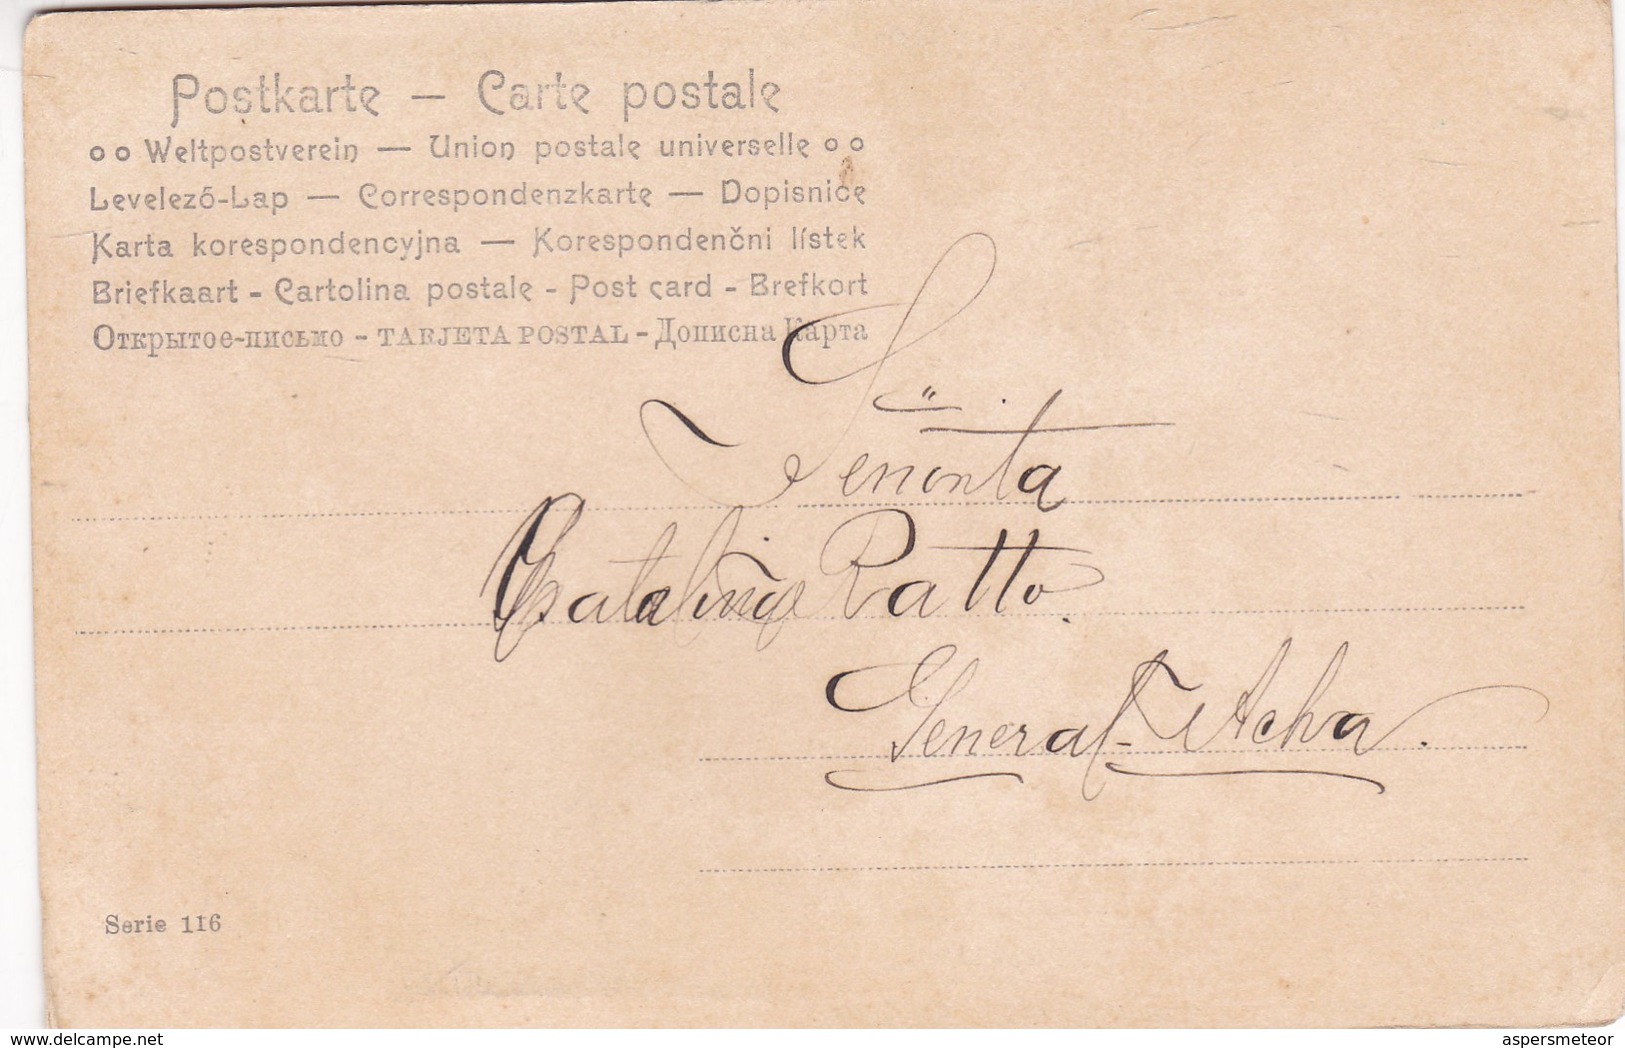 Postkarte — Carte postale
o o Weltpostverein — Union postale universelle o o
Levelező-Lap — Correspondenzkarte — Dopisnice
Karta korespondencyjna — Korespondenčni lístek
Briefkaart - Cartolina postale - Post card - Brefkort
Открытое-письмо - TARJETA POSTAL - Дописна Карта
Señorita
Catalina Ratto.
General Acha.
Serie 116
www.delcampe.net
aspersmeteor